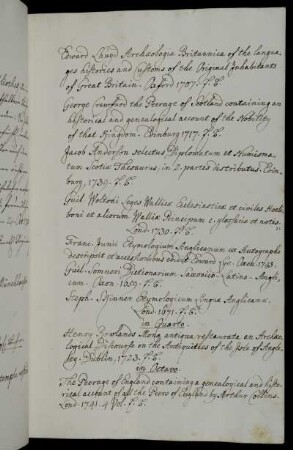 Edward Lhuyd Archæologia Britannica of the langua
ges histories and Customs of the Original Inhabitants
of Great Britain. Oxford 1707. f. E.
George Crawfurd the Peerage of Scotland containing an
historical and genealogical account of the Nobility
of that Kingdom. Edinburg 1717. f. E.
Jacob. Anderson selectus Diplomatum et Numisma
tum Scotiæ Thesaurus, in 2. partes distributus. Edin
burg, 1739. f. E.
Guil Wottoni Leges Wallicæ Ecclesiasticæ et civiles Hoeli
boni et aliorum Walliæ Principum c. glossario et notis
Lond. 1730. f. E.
Franc. Junii Etymologicum Anglicanum ex Autographo
descripsit et accessionibus Edward Lye. Oxon. 1743.
Guil. Somneri Dictionarium Saxonico Latino Angli
cum. Oxon. 1659. f. E.
Steph. Skinner Etymologicon Linguæ Anglicanæ
Lond. 1671. f. E.
in Quarto
Henry Rowlands Mona antiqua restaurata an Archæo
logical Discourse on the Antiquities of the Isle of Angle
sey. Dublin, 1723. f. E.
in Octavo
The Peerage of England containing a genealogical and histo
rical account of all the Peers of England by Arthur Collins
Lond. 1741. 4 Vol. f. E.